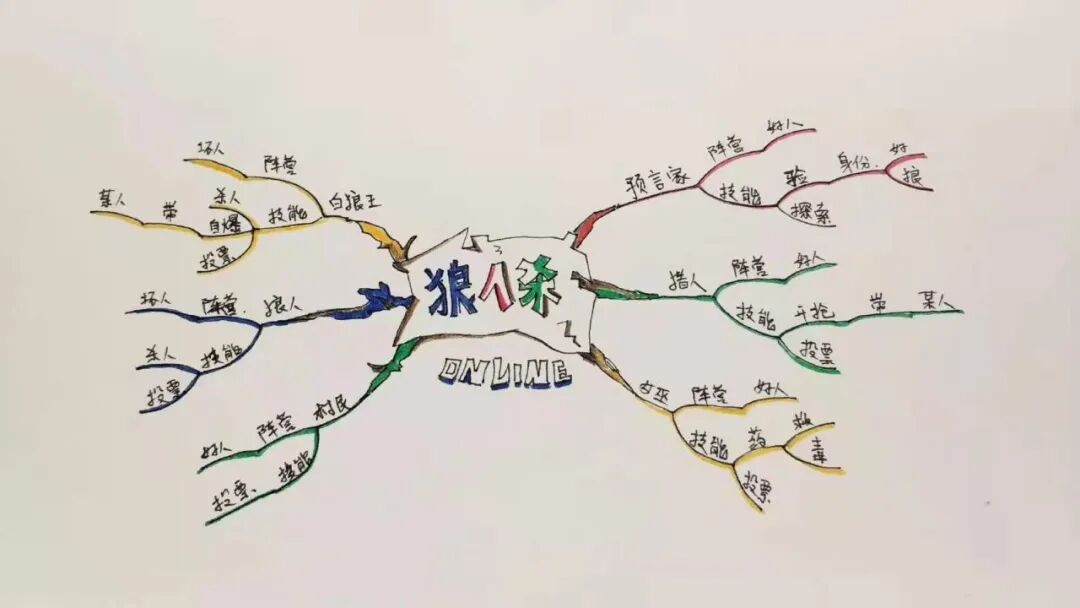 狼人杀
ONLINE
预言家
阵营
好人
技能
验
身份
好
狼
探索
猎人
阵营
好人
技能
开抢
带
某人
投票
女巫
阵营
好人
技能
药
救
毒
投票
村民
阵营
好人
技能
投票
狼人
阵营
坏人
技能
杀人
投票
白狼王
阵营
坏人
技能
杀人
自爆
带
某人
投票